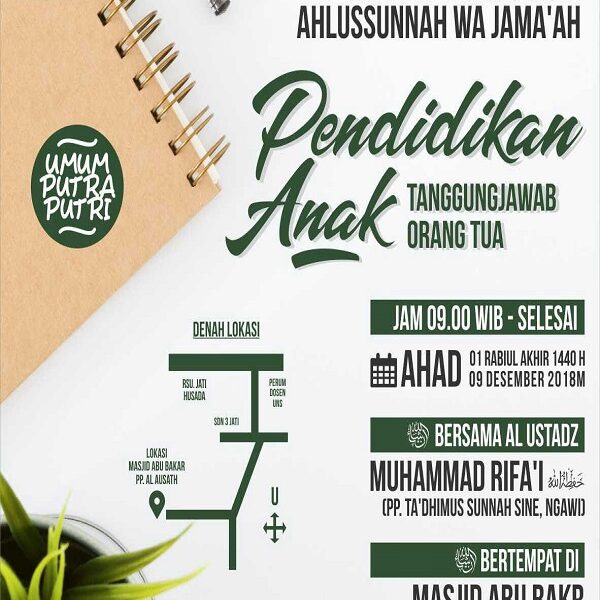 AHLUSSUNNAH WA JAMA'AH
Pendidikan
Anak
TANGGUNGJAWAB
ORANG TUA
UMUM
PUTRA
PUTRI
JAM 09.00 WIB - SELESAI
AHAD
01 RABIUL AKHIR 1440 H
09 DESEMBER 2018M
DENAH LOKASI
RSU. JATI
HUSADA
PERUM
DOSEN
UNS
SDN 3 JATI
LOKASI
MASJID ABU BAKAR
PP. AL AUSATH
U
BERSAMA AL USTADZ
MUHAMMAD RIFA'I حفظه الله
(PP. TA'DHIMUS SUNNAH SINE, NGAWI)
BERTEMPAT DI
MASJID ABU BAKR